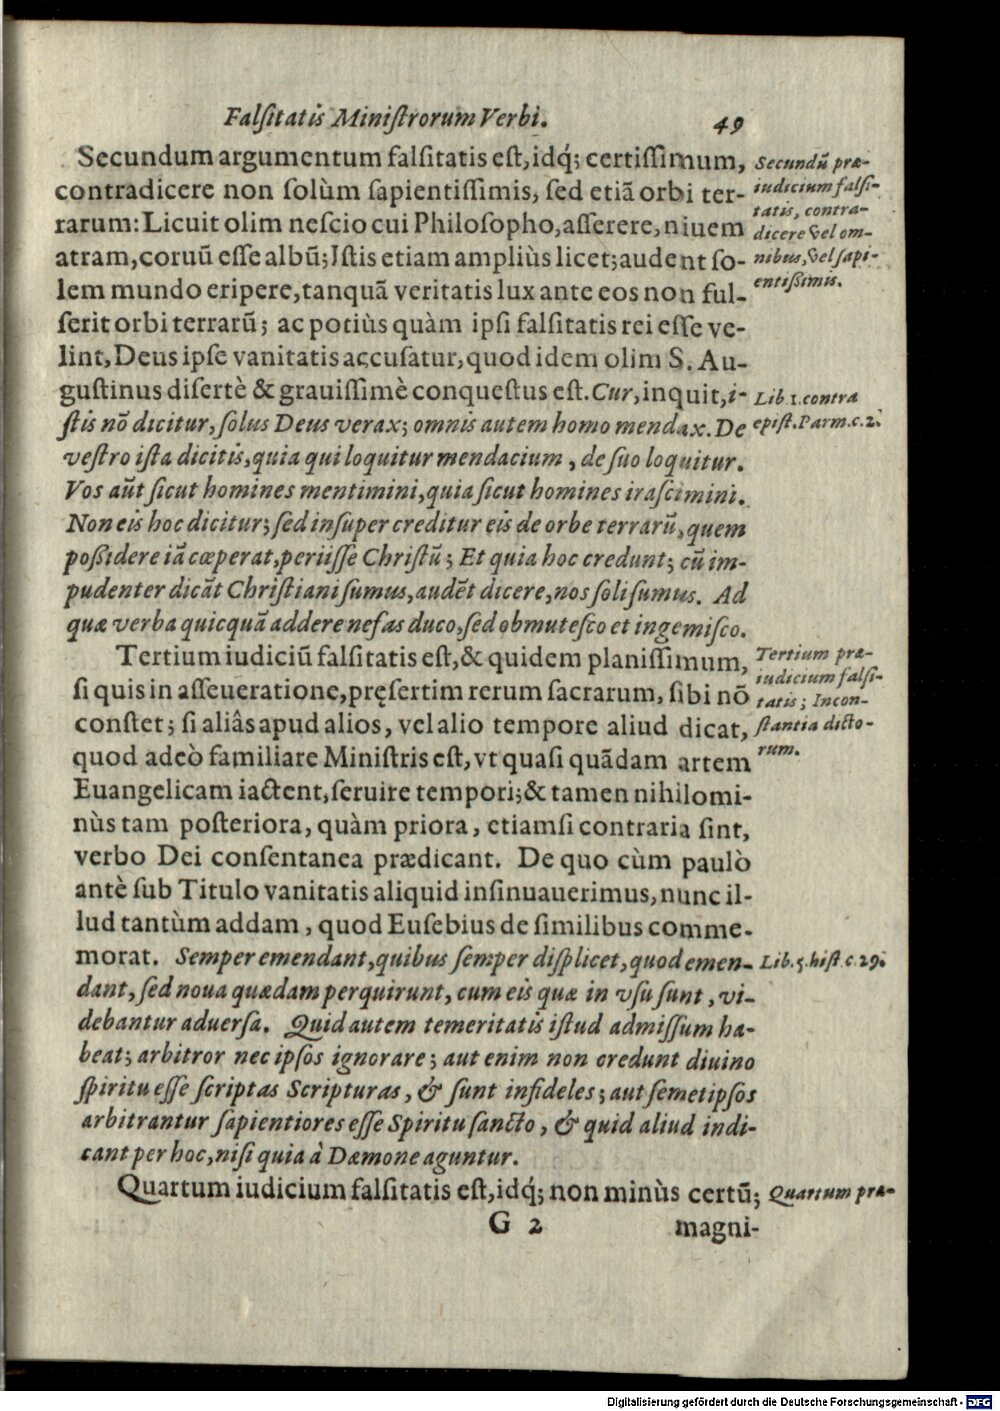 Falſitatis Miniſtrorum Verbi. 49
Secundum argumentum falſitatis eſt, idq́; certiſſimum,
contradicere non ſolùm ſapientiſſimis, ſed etiã orbi ter-
rarum: Licuit olim neſcio cui Philoſopho, aſſerere, niuem
atram, coruũ eſſe albũ; Iſtis etiam ampliùs licet; audent ſo-
lem mundo eripere, tanquã veritatis lux ante eos non ful-
ſerit orbi terrarũ; ac potiùs quàm ipſi falſitatis rei eſſe ve-
lint, Deus ipſe vanitatis accuſatur, quod idem olim S. Au-
guſtinus diſertè & grauiſſimè conqueſtus eſt. Cur, inquit, i-
ſtis nõ dicitur, ſolus Deus verax; omnis autem homo mendax. De
veſtro iſta dicitis, quia qui loquitur mendacium, de ſuo loquitur.
Vos aũt ſicut homines mentimini, quia ſicut homines iraſcimini.
Non eis hoc dicitur; ſed inſuper creditur eis de orbe terrarũ, quem
poßidere iã cœperat, periiſſe Chriſtũ; Et quia hoc credunt; cũ im-
pudenter dicãt Chriſtiani ſumus, audẽt dicere, nos ſoli ſumus. Ad
quæ verba quicquã addere nefas duco, ſed obmuteſco et ingemiſco.
Tertium iudiciũ falſitatis eſt, & quidem planiſſimum,
ſi quis in aſſeueratione, pręſertim rerum ſacrarum, ſibi nõ
conſtet; ſi aliâs apud alios, vel alio tempore aliud dicat,
quod adeò familiare Miniſtris eſt, vt quaſi quãdam artem
Euangelicam iactent, ſeruire tempori; & tamen nihilomi-
nùs tam poſteriora, quàm priora, etiamſi contraria ſint,
verbo Dei conſentanea prædicant. De quo cùm paulò
antè ſub Titulo vanitatis aliquid inſinuauerimus, nunc il-
lud tantùm addam, quod Euſebius de ſimilibus comme-
morat. Semper emendant, quibus ſemper diſplicet, quod emen-
dant, ſed noua quædam perquirunt, cum eis quæ in vſu ſunt, vi-
debantur aduerſa. Quid autem temeritatis iſtud admiſſum ha-
beat; arbitror nec ipſos ignorare; aut enim non credunt diuino
ſpiritu eſſe ſcriptas Scripturas, & ſunt infideles; aut ſemetipſos
arbitrantur ſapientiores eſſe Spiritu ſancto, & quid aliud indi-
cant per hoc, niſi quia à Dæmone aguntur.
Quartum iudicium falſitatis eſt, idq́; non minùs certũ;
G 2 magni-
Secundũ præ-
iudicium falſi-
tatis, contra-
dicere vel om-
nibus, vel ſapi-
entißimis.
Lib. 1. contra
epiſt. Parm. c. 2.
Tertium præ-
iudicium falſi-
tatis; Incon-
ſtantia dicto-
rum.
Lib. 5. hiſt. c. 29.
Quartum præ-
Digitalisierung gefördert durch die Deutsche Forschungsgemeinschaft - DFG